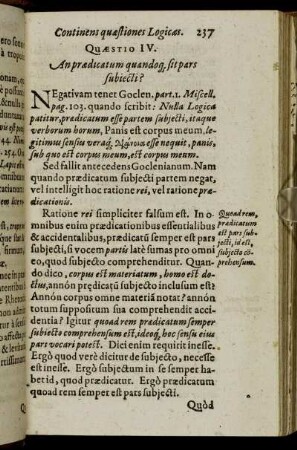 Continens quæstiones Logicas. 237
QUÆSTIO IV.
An prædicatum quandoq́; sit pars
subiecti?
NEgativam tenet Goclen. part. 1. Miscell.
pag. 103. quando scribit: Nulla Logica
patitur, prædicatum esse partem subjecti, itaque
verborum horum, Panis est corpus meum, le-
gitimus sensus veraq́; esse nequit, panis,
sub quo est corpus meum, est corpus meum.
Sed fallit antecedens Goclenianum. Nam
quando prædicatum subjecti partem negat,
vel intelligit hoc ratione rei, vel ratione præ-
dicationis.
Ratione rei simpliciter falsum est. In o-
mnibus enim prædicationibus essentialibus
& accidentalibus, prædicatũ semper est pars
subjecti, si vocem partis latè sumas pro omni
eo, quod subjecto comprehenditur. Quan-
do dico, corpus est materiatum, homo est do-
ctus, annón prędicatũ subjecto inclusum est?
Annón corpus omne materiâ notat? annón
totum suppositum sua comprehendit acci-
dentia? Igitur quoad rem prædicatum semper
subiecto comprehensum est, ideoq́; hoc sensu eius
pars vocari potest. Dici enim requirit inesse.
Ergò quod verè dicitur de subjecto, necesse
est inesse. Ergò subjectum in se semper ha-
bet id, quod prædicatur. Ergò prædicatum
quoad rem semper est pars subjecti.
Quòd
Quoad rem,
prædicatum
est pars sub-
jecti, id est,
subjecto com-
prehensum.